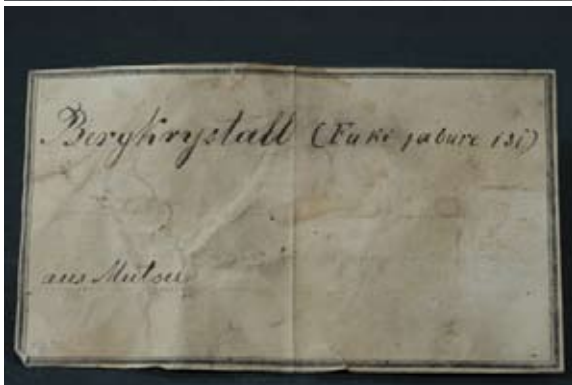 Bergkrystall (Fuki jabure isi)
aus Mutsu